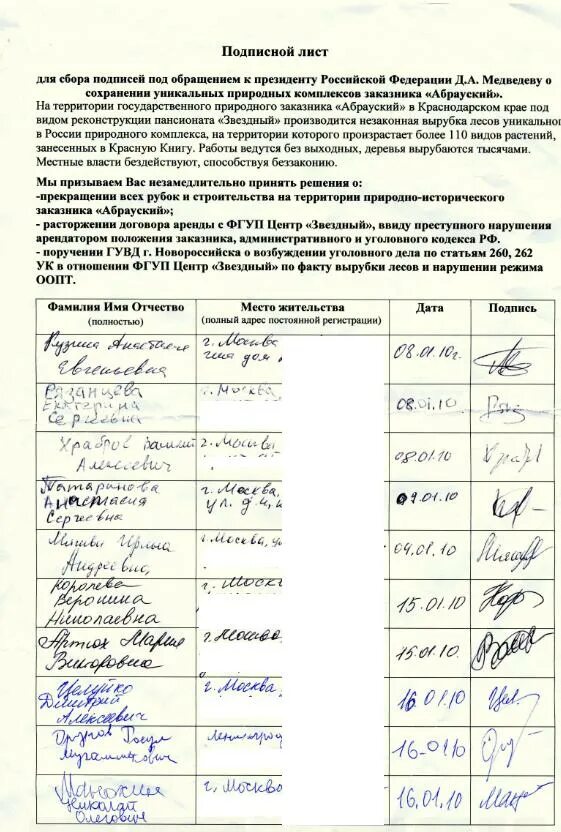 Подписной лист
для сбора подписей под обращением к президенту Российской Федерации Д.А. Медведеву о
сохранении уникальных природных комплексов заказника «Абрауский».
На территории государственного природного заказника «Абрауский» в Краснодарском крае под
видом реконструкции пансионата «Звездный» производится незаконная вырубка лесов уникально
в России природного комплекса, на территории которого произрастает более 110 видов растений,
занесенных в Красную Книгу. Работы ведутся без выходных, деревья вырубаются тысячами.
Местные власти бездействуют, способствуя беззаконию.
Мы призываем Вас незамедлительно принять решения о:
-прекращении всех рубок и строительства на территории природно-исторического
заказника «Абрауский»;
- расторжении договора аренды с ФГУП Центр «Звездный», ввиду преступного нарушения
арендатором положения заказника, административного и уголовного кодекса РФ.
- поручении ГУВД г. Новороссийска о возбуждении уголовного дела по статьям 260, 262
УК в отношении ФГУП Центр «Звездный» по факту вырубки лесов и нарушении режима
ООПТ.
Фамилия Имя Отчество Место жительства Дата Подпись
(полностью) (полный адрес постоянной регистрации)
Анастасия г. Москва 08.01.10г.
Евгеньевна дом
Рязанцева г. Москва, 08.01.10
Екатерина
Сергеевна
Храбров г. Москва 08.01.10
Алексеевич
Татаринова г. Москва, 09.01.10
Анастасия ул.
Сергеевна
Ирина г. Москва, 09.01.10
Андреевна,
Королева г. Моск 15.01.10
Вероника
Николаевна
Мария г. Москва, 15.01.10.
Викторовна
Целуйко г. Москва, 16.01.10 Цел
Дмитрий
Алексеевич
Расул Ленинград 16-01.10
г. Москва 16.01.10
Николай
Олегович